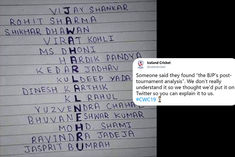 VIJAY SHANKAR
ROHIT SHARMA
SHIKHAR DHAWAN
VIRAT KOHLI
MS DHONI
HARDIK PANDYA
KEDAR JADHAV
KULDEEP YADAV
DINESH KARTHIK
KL RAHUL
YUZVENDRA CHAHAL
BHUVANESHWAR KUMAR
MOHD SHAMI
RAVINDRA JADEJA
JASPRIT BUMRAH
Iceland Cricket
Someone said they found "the BJP's post-tournament analysis". We don't really understand it so we thought we'd put it on Twitter so you can explain it to us.
#CWC19